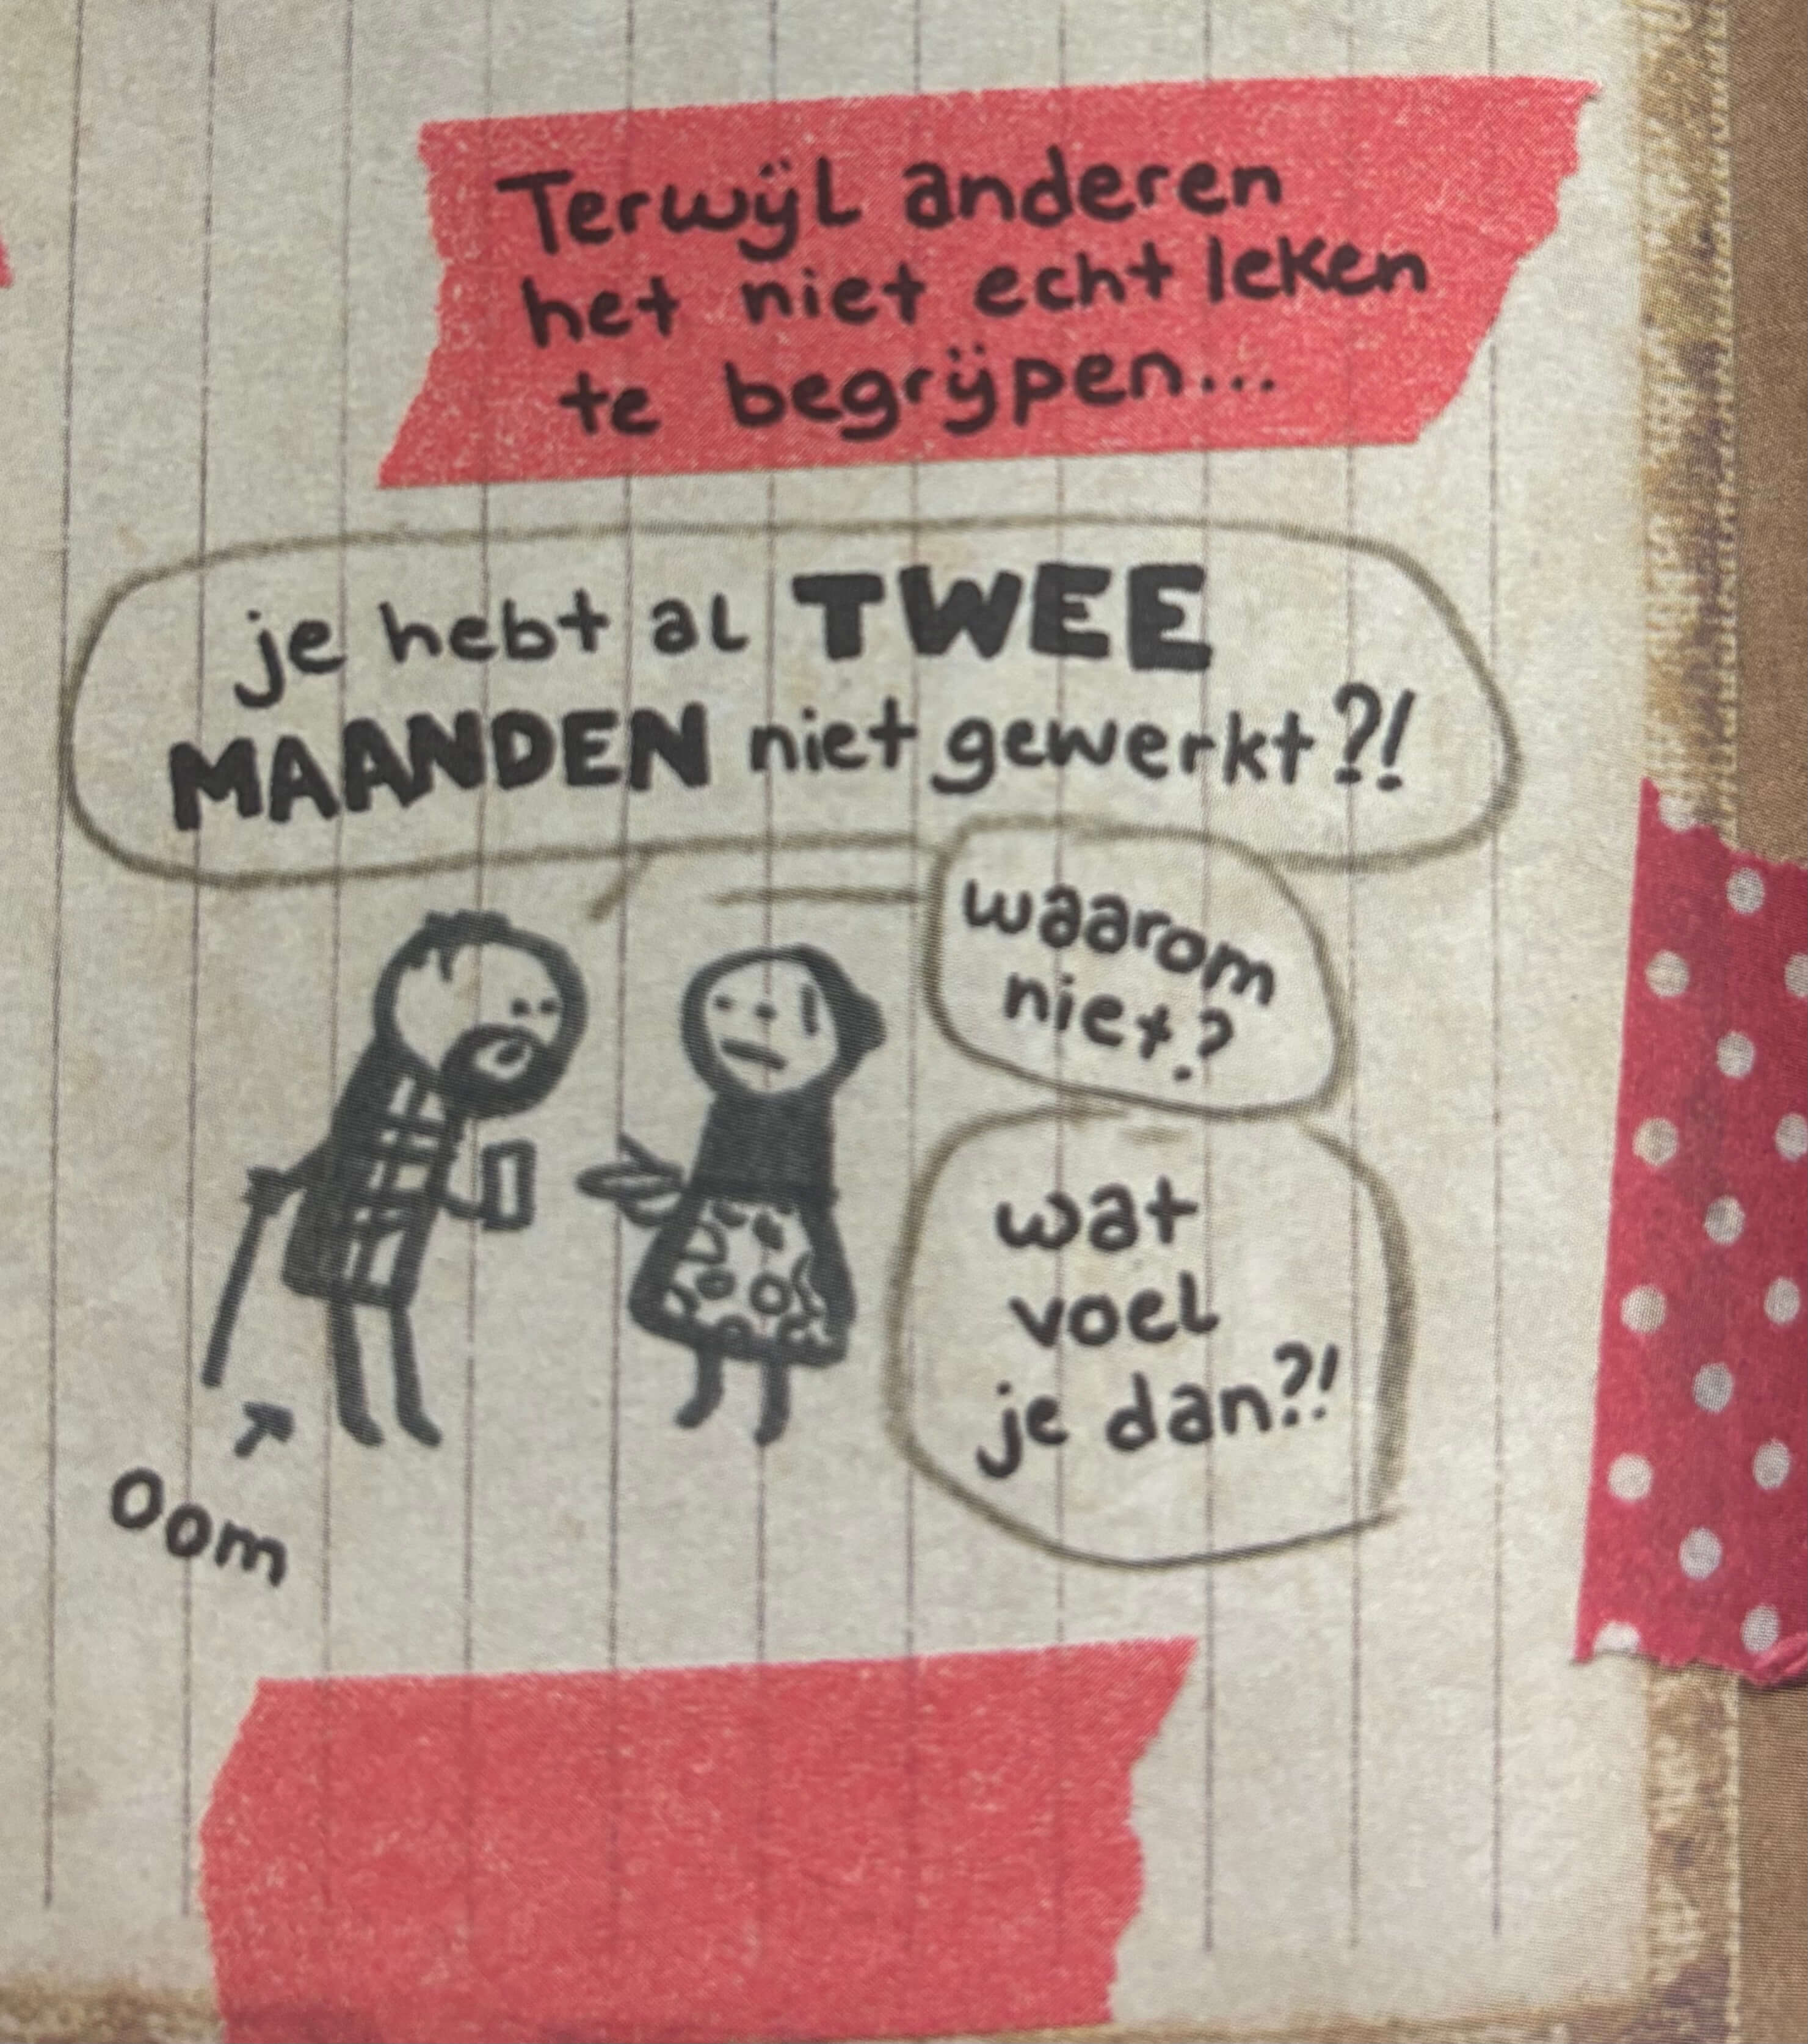 Terwijl anderen
het niet echt leken
te begrijpen...
je hebt al TWEE
MAANDEN niet gewerkt?!
waarom
niet?
wat
voel
je dan?!
oom